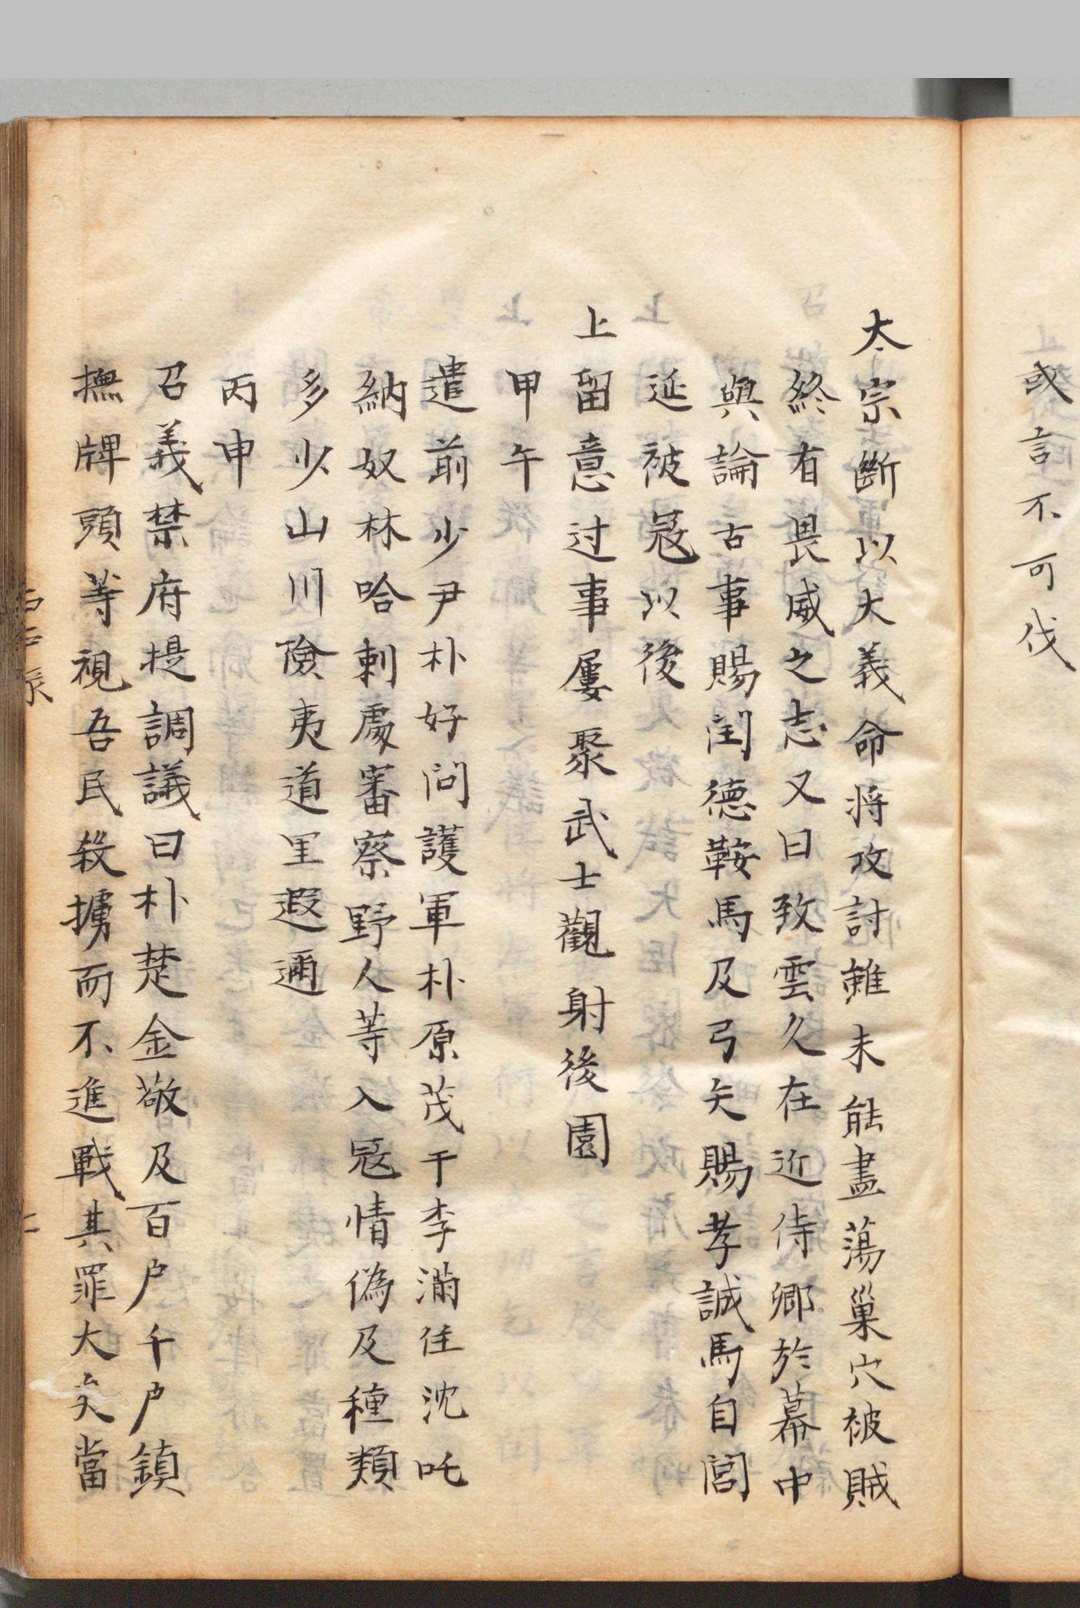 或言不可伐
太宗斷以大義命將攻討雖未能盡蕩巢穴彼賊
終有畏威之志又曰致雲久在近侍鄉於幕中
與論古事賜閏德鞍馬及弓矢賜孝誠馬自閭
延被冦以後
上留意过事屢聚武士觀射後園
甲午
遣前少尹朴好问護軍朴原茂于李滿住沈吒
納奴林哈剌處審察野人等入冦情偽及種類
多少山川險夷道里遐邇
丙申
召義禁府提調議曰朴楚金敬及百户千户鎮
撫牌頭等視吾民殺擄而不進戰其罪大矣當